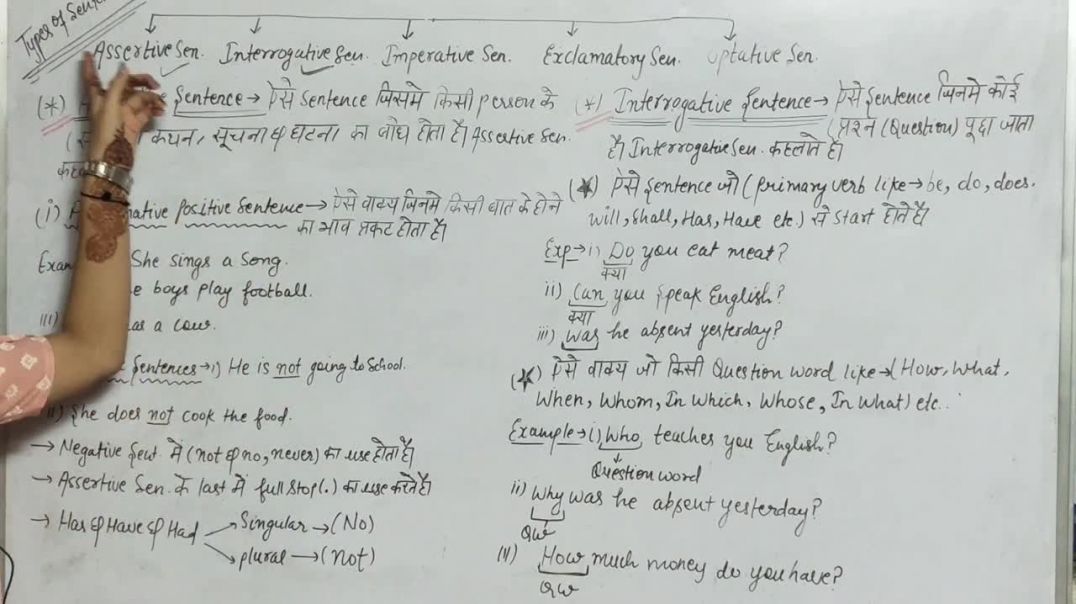 Types of Sente
Assertive Sen. Interrogative Sen. Imperative Sen. Exclamatory Sen. Optative Sen.
(*) Sentence → ऐसे Sentence जिसमे किसी person के
कथन, सूचना & घटना का बोध होता है। Assertive Sen.
(i) Positive Sentence → ऐसे वाक्य जिनमे किसी बात के होने
का भाव प्रकट होता है।
She sings a song.
boys play football.
a cow.
Sentences → i) He is not going to School.
She does not cook the food.
→ Negative Sent. में (not & no, never) का use होता है।
→ Assertive Sen. के last में full stop (.) का use करते है।
→ Has & Have & Had
Singular → (No)
plural → (not)
(*) Interrogative Sentence → ऐसे Sentence जिनमे कोई
प्रश्न (Question) पूछा जाता
है। Interrogative Sen. कहलाते है।
(★) ऐसे Sentence जो (primary verb like → be, do, does.
will, Shall, Has, Have etc.) से Start होते है।
Exp → i) Do you eat meat?
क्या
ii) Can you Speak English?
क्या
iii) Was he absent yesterday?
(★) ऐसे वाक्य जो किसी Question word like → (How, What,
When, Whom, In which, Whose, In what) etc..
Example → i) Who teaches you English?
Question word
ii) Why was he absent yesterday?
QW
(iv) How much money do you have?
QW